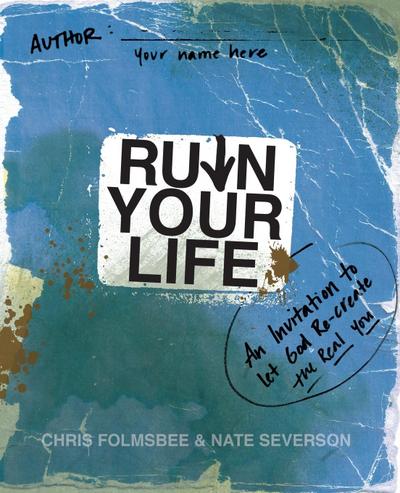 AUTHOR:
your name here
RUIN
YOUR
LIFE
An Invitation to
let God Re-create
the Real You
CHRIS FOLMSBEE & NATE SEVERSON